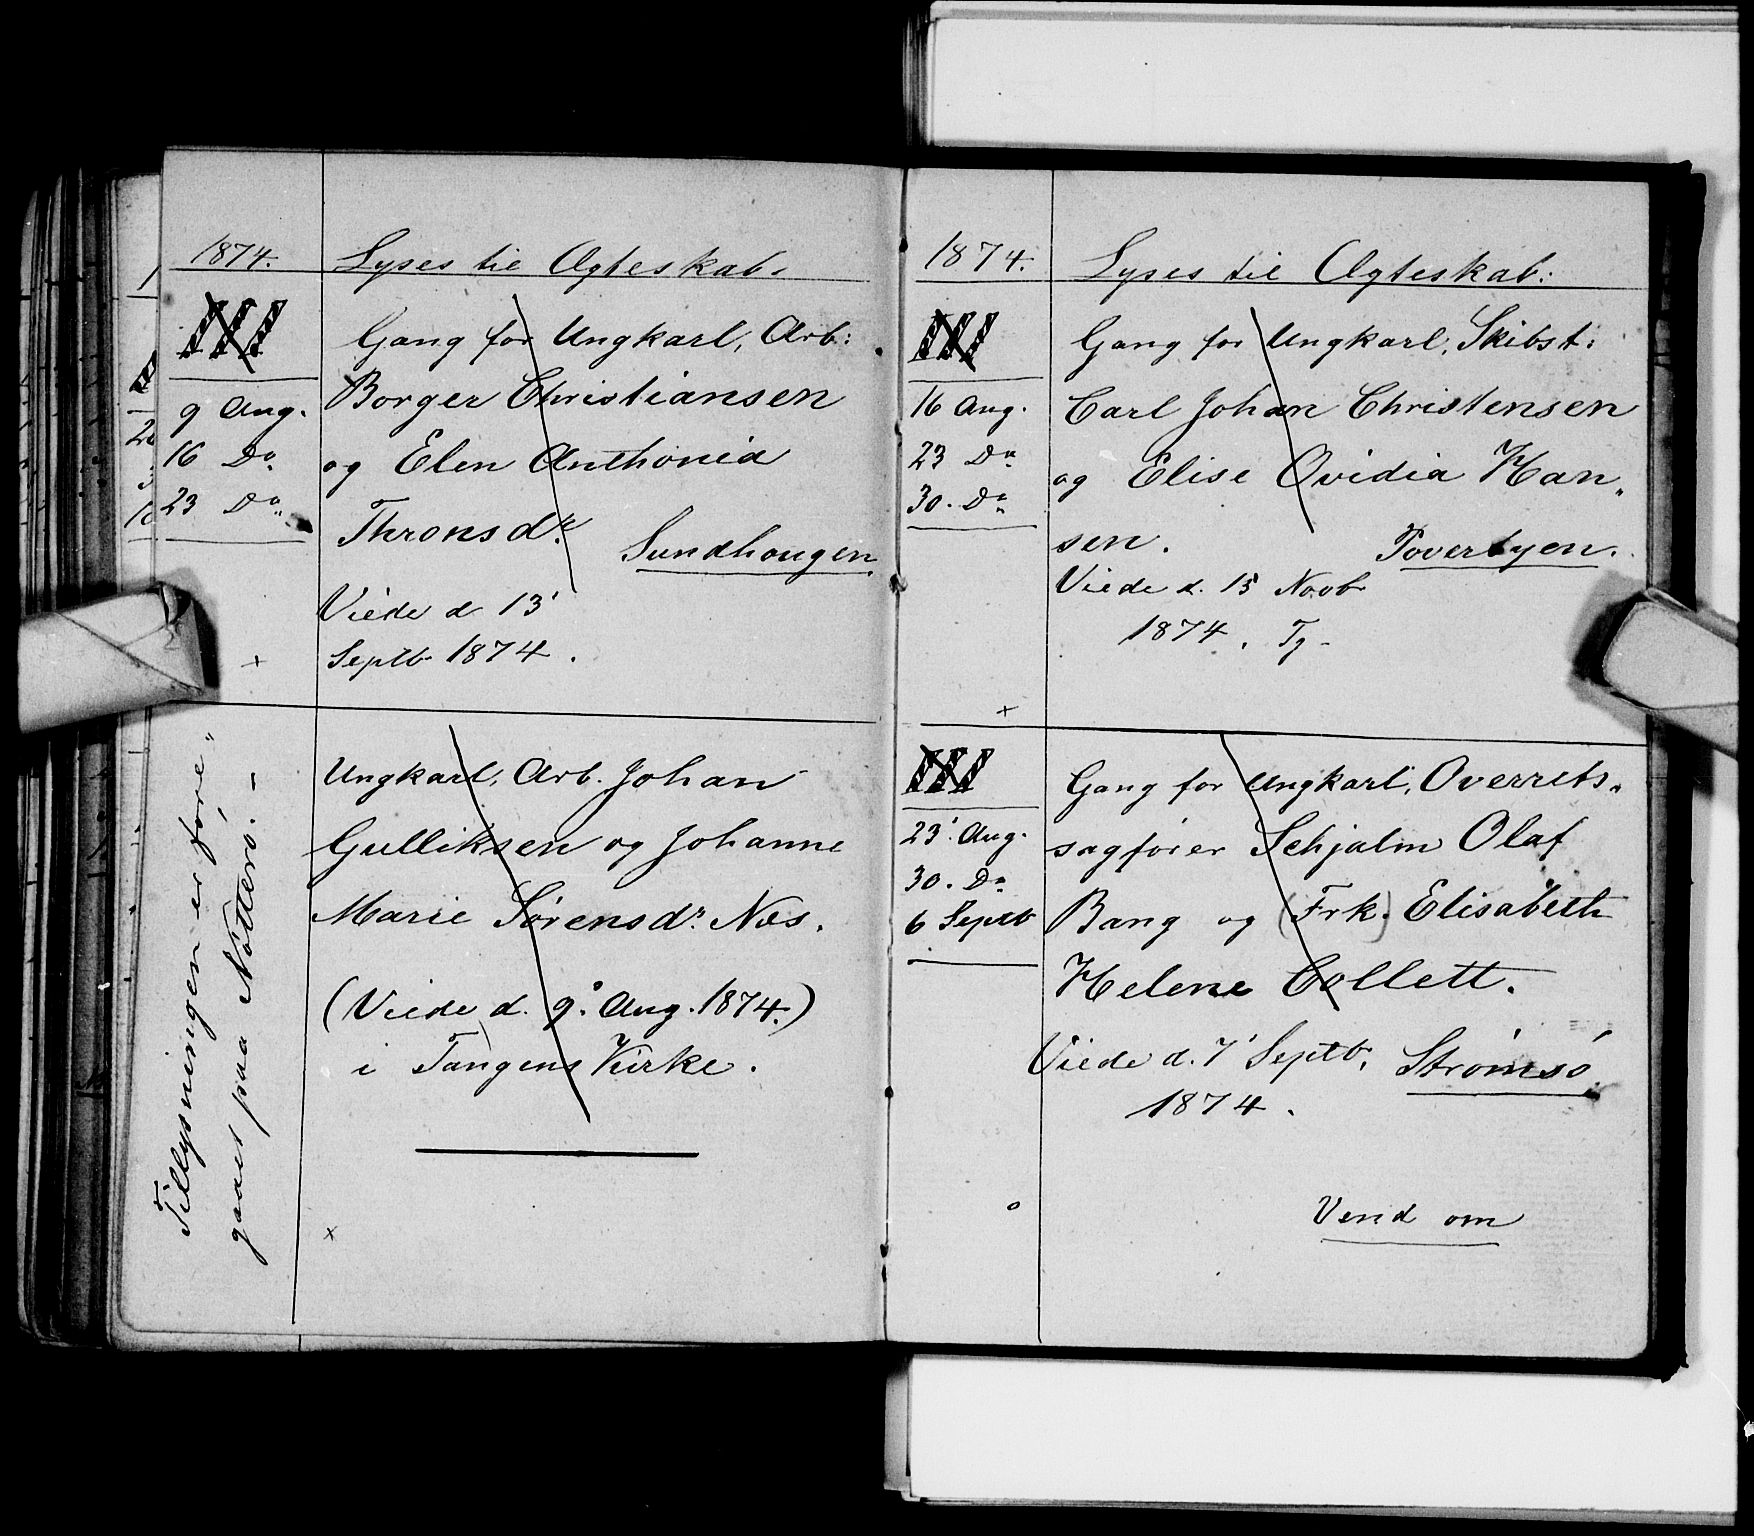 1874.
Lyses til Ægteskab.
III
Gang for Ungkarl, Arb:
Borger Christiansen
og Elen Anthonia
Thronsdr.
Sundhougen.
9 Aug.
16 Do
23 Do
Viede d 13'
Septb 1874.
Tillysningen er fore„
gaaet paa Nötterö. –
Ungkarl, Arb. Johan
Gulliksen og Johanne
Marie Sørensdr. Næs.
(Viede d. 9. Aug. 1874.)
i Tangens Kirke.
1874.
Lyses til Ægteskab:
III
Gang for Ungkarl, Skibst:
Carl Johan Christensen
og Elise Ovidia Han„
sen.
Toverbyen.
16 Aug.
23 Do
30. Do
Viede d. 15 Novb
1874. Tg-
III
Gang for Ungkarl, Overrets„
sagfører Schjalm Olaf
Bang og (Frk.) Elisabeth
Helene Collett.
23'. Aug.
30. Do
6 Septb
Viede d. 7' Septb.
Strømsö
1874.
Vend om